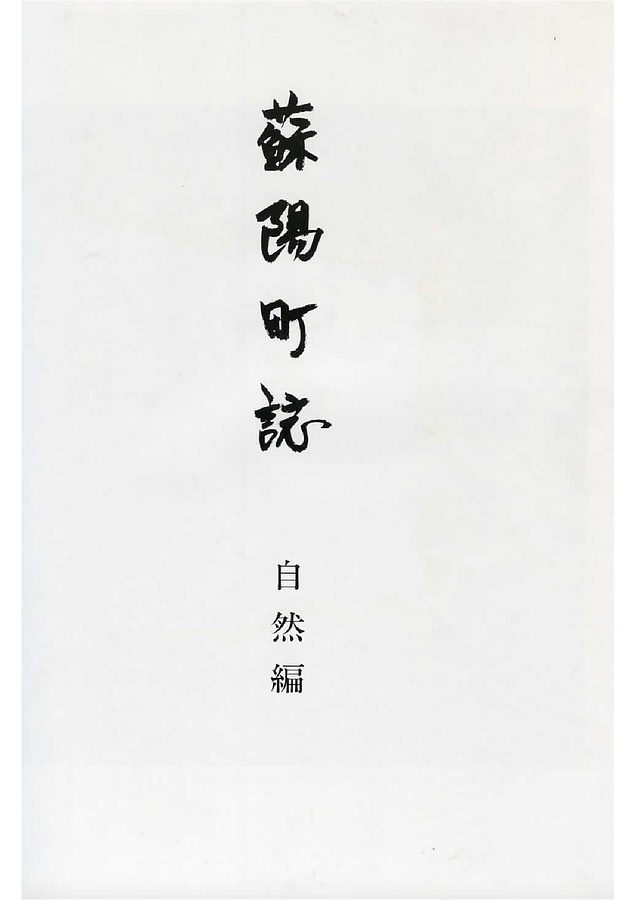 蘇陽町誌
自然編